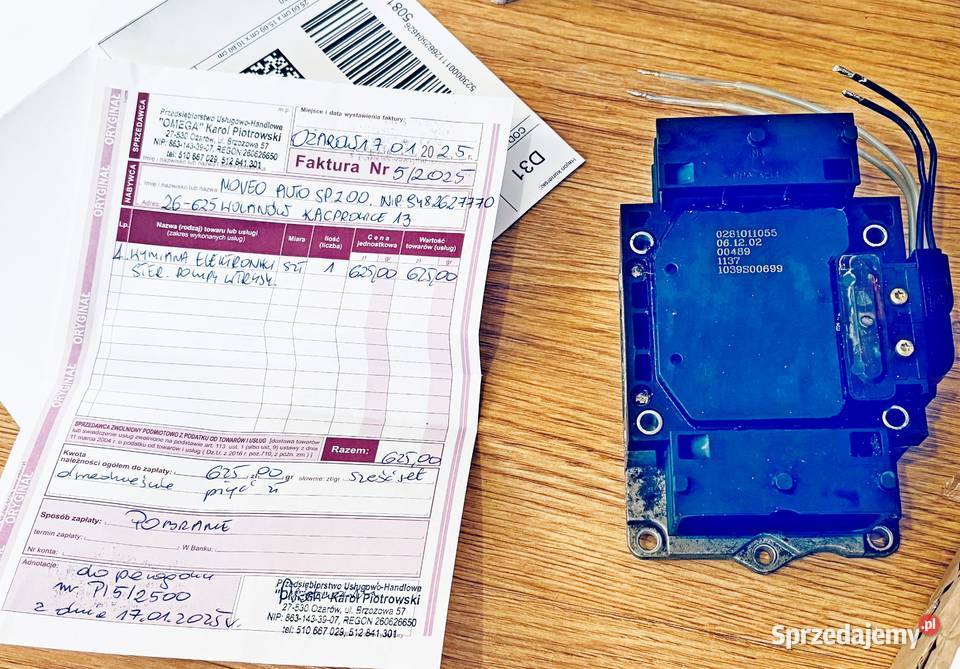 25.60 cm x 15.00 cm x 10.60 cm
5081
52300001112662504626
COD
D31
ORYGINAŁ
ORYGINAŁ
ORYGINAŁ
ORYGINAŁ
ORYGINAŁ
SPRZEDAWCA
Przedsiębiorstwo Usługowo-Handlowe
"OMEGA" Karol Piotrowski
27-530 Ożarów, ul. Brzozowa 57
NIP: 863-143-39-07, REGON 260626650
tel: 510 667 029, 512 841 301
m.p.
Miejsce i data wystawienia faktury:
OŻARÓW 17.01.2025 r.
Faktura Nr 5/2025
NABYWCA
Imię i nazwisko lub nazwa NOVEO AUTO SP. Z O.O. NIP. 9482627770
Adres: 26-625 WOLANÓW KACPROWICE 13
Lp.
Nazwa (rodzaj) towaru lub usługi
(zakres wykonanych usług)
Miara
Ilość
(liczba)
Cena
jednostkowa
Wartość
towarów (usług)
zł gr zł gr
1. WYMIANA ELEKTRONIKI SZT 1 625,00 625,00
STER. POMPY WTRYSK.
SPRZEDAWCA ZWOLNIONY PODMIOTOWO Z PODATKU OD TOWARÓW I USŁUG [dostawa towarów
lub świadczenie usług zwolnione na podstawie art. 113 ust. 1 (albo ust. 9) ustawy z dnia
11 marca 2004 r. o podatku od towarów i usług ( Dz.U. z 2016 r. poz.710, z późn. zm.) ]
Razem: 625,00
Kwota
należności ogółem do zapłaty: 625,00 gr słownie: zł/gr sześćset
dwadzieścia pięć zł
Sposób zapłaty: POBRANIE
termin zapłaty: W Banku:
Nr konta:
Adnotacje:
do paragonu
nr P15/2500
z dnia 17.01.2025r.
Przedsiębiorstwo Usługowo-Handlowe
"OMEGA" Karol Piotrowski
27-530 Ożarów, ul. Brzozowa 57
NIP: 863-143-39-07, REGON 260626650
tel: 510 667 029, 512 841 301
0281011055
06.12.02
00489
1137
1039S00699
Sprzedajemy.pl